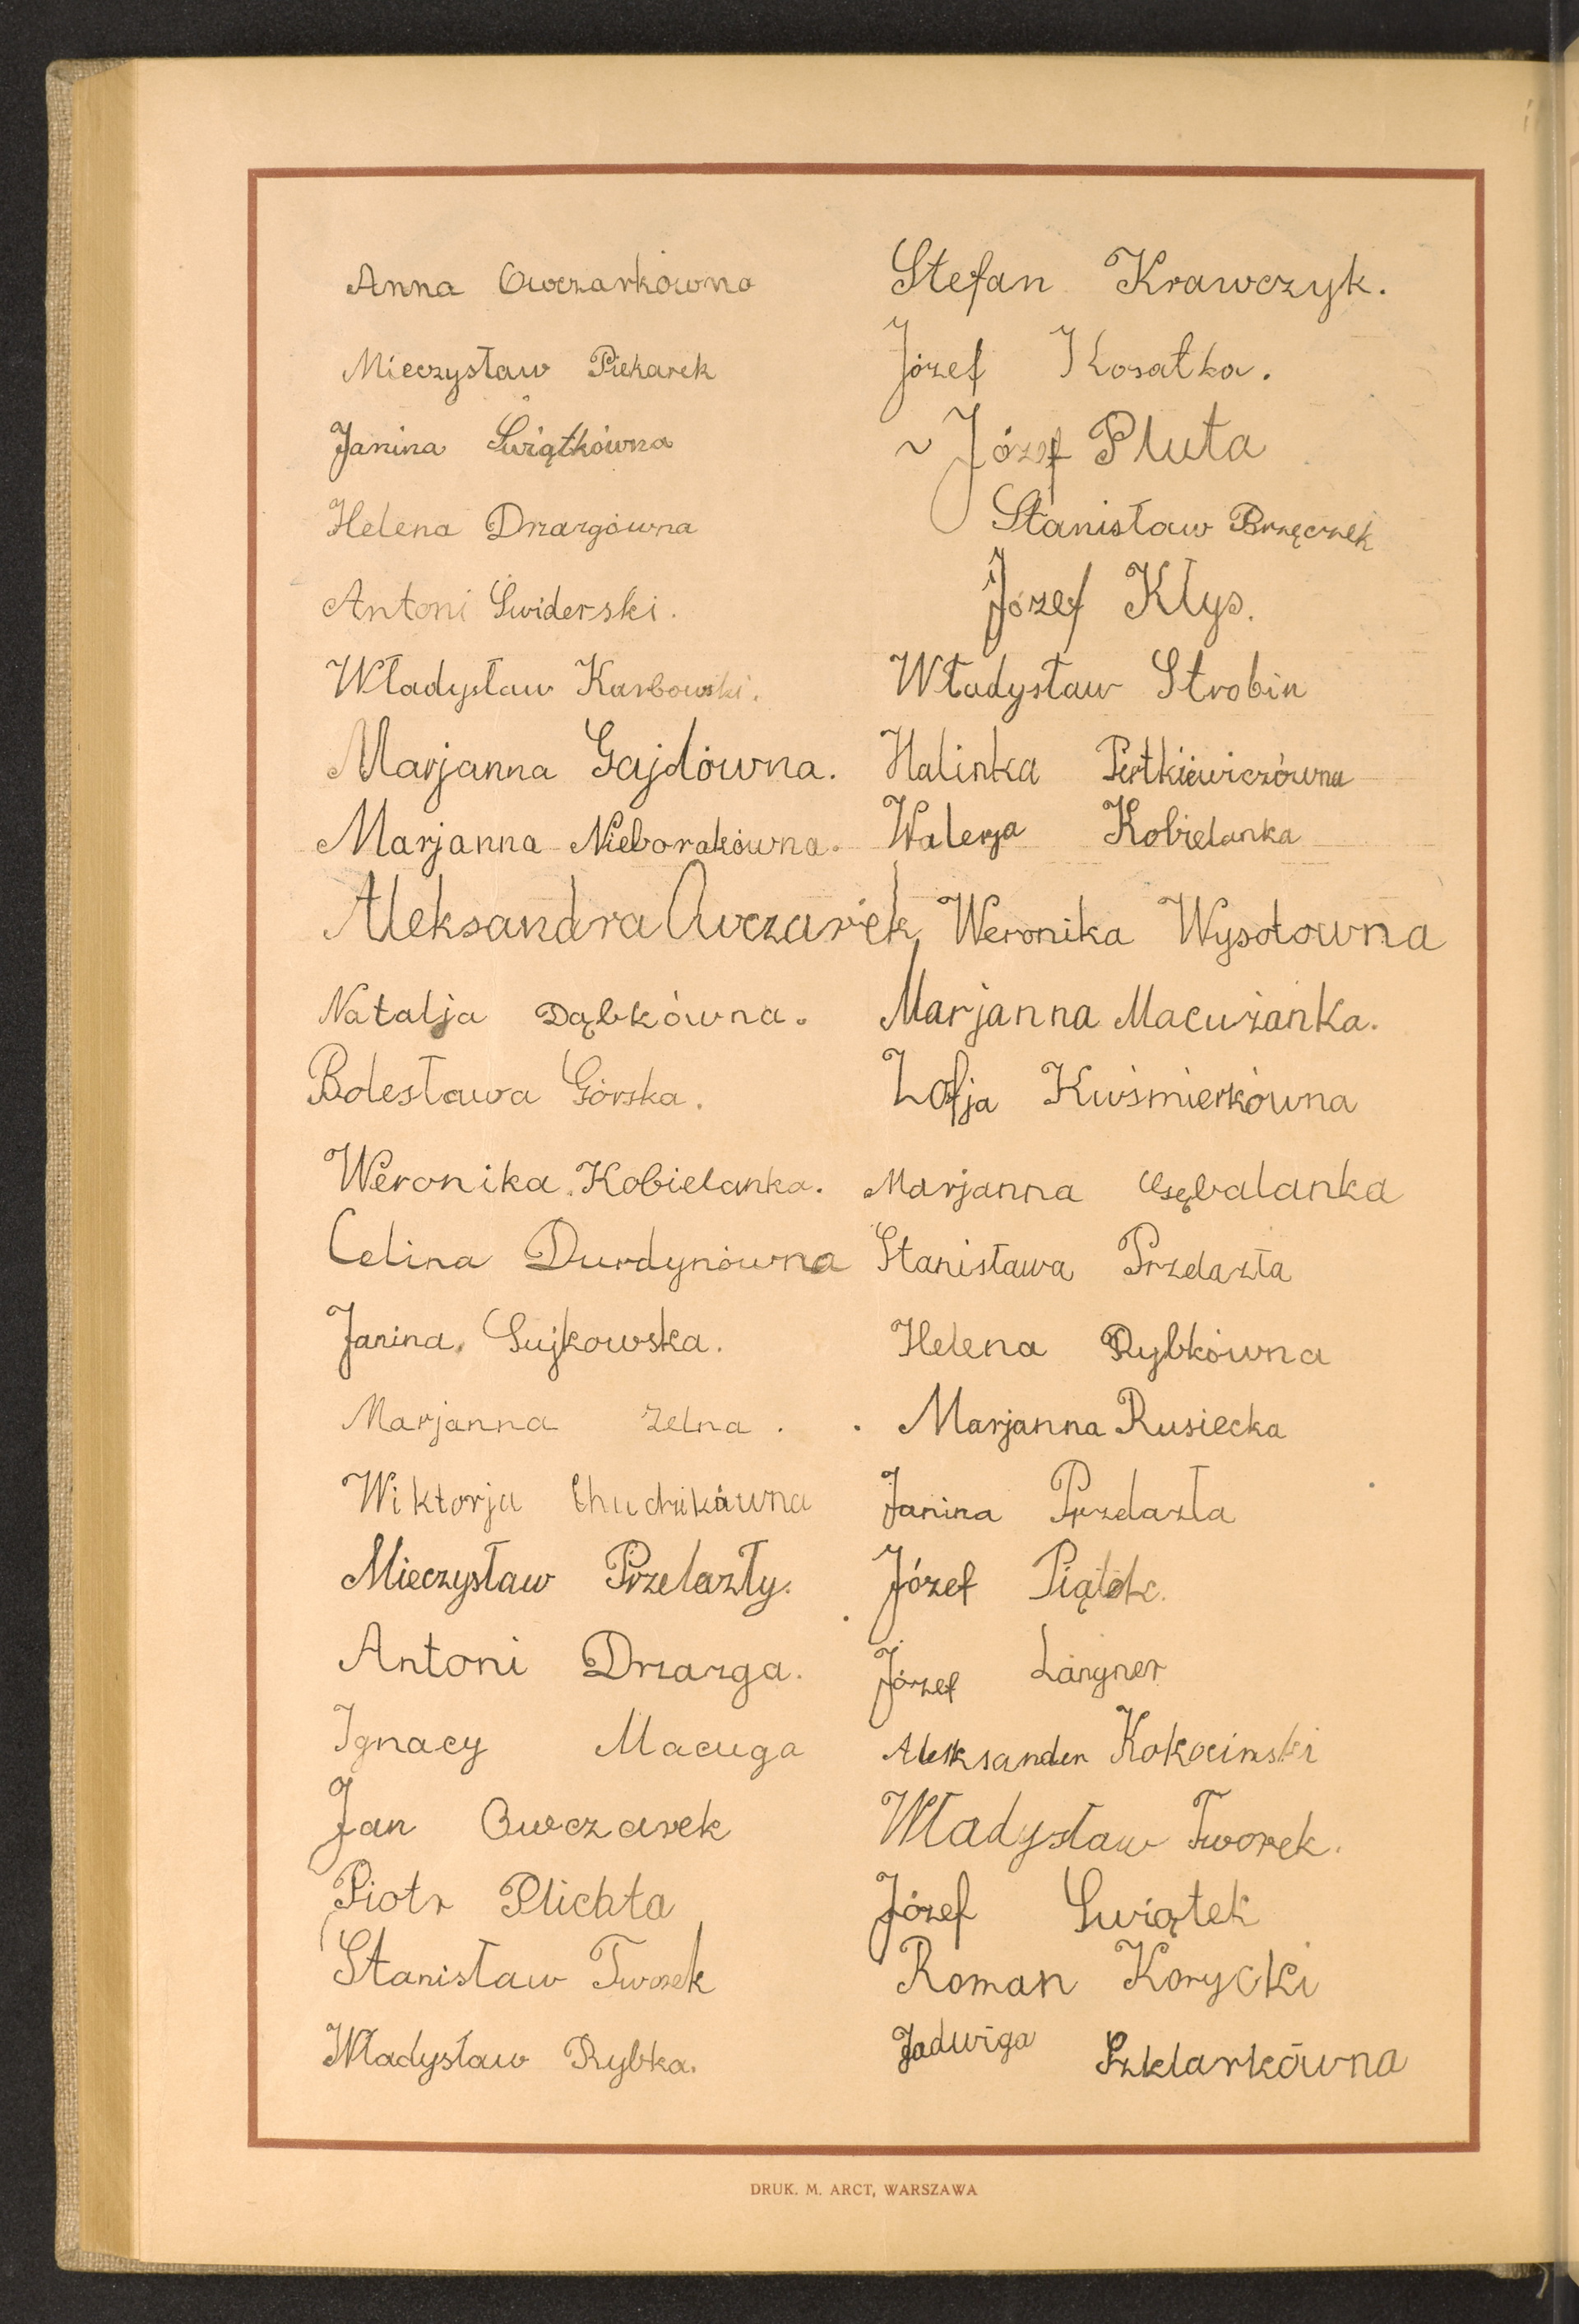 Anna Owczarkówna
Mieczysław Piekarek
Janina Świątkówna
Helena Drzazgówna
Antoni Świderski.
Władysław Karbowski.
Marjanna Gajdówna.
Marjanna Nieborakówna.
Aleksandra Owczarek
Natalja Dąbkówna.
Bolesława Górska.
Weronika Kobielanka.
Celina Durdynówna
Janina Sujkowska.
Marjanna Zelna.
Wiktorja Chudzikówna
Mieczysław Przelazły.
Antoni Drzazga.
Ignacy Macuga
Jan Owczarek
Piotr Plichta
Stanisław Tworek
Władysław Rybka.
Stefan Krawczyk.
Józef Kosatka.
~ Józef Pluta
Stanisław Brzęczek
Józef Kłys.
Władysław Strobin
Halinka Pietkiewiczówna
Walerja Kobielanka
Weronika Wysotowna
Marjanna Macużanka.
Zofja Kuśmierkówna
Marjanna
Stanisława Przelazła
Helena Rybkówna
Marjanna Rusiecka
Janina Przelazła
Józef Piątek.
Józef Langner
Aleksander Kokocinski
Władysław Tworek.
Józef Swiątek
Roman Korycki
Jadwiga Szklarkówna
DRUK. M. ARCT, WARSZAWA